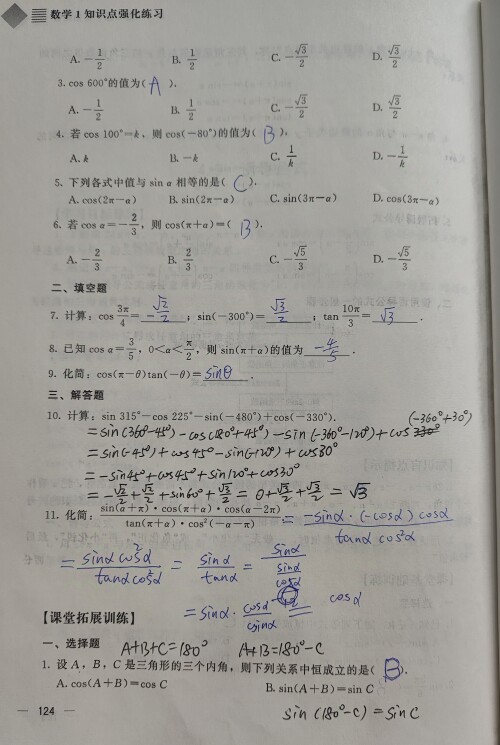 数学1知识点强化练习
A. -1/2 B. 1/2 C. -√3/2 D. √3/2
3. cos 600°的值为( A ).
A. -1/2 B. 1/2 C. -√3/2 D. √3/2
4. 若 cos 100°=k, 则 cos(-80°)的值为( B ).
A. k B. -k C. 1/k D. -1/k
5. 下列各式中值与 sin α 相等的是( C ).
A. cos(2π-α) B. sin(2π-α) C. sin(3π-α) D. cos(3π-α)
6. 若 cos α=-2/3, 则 cos(π+α)=( B ).
A. -2/3 B. 2/3 C. -√5/3 D. -√5/3
二、填空题
7. 计算: cos 3π/4 = -√2/2 ; sin(-300°)= √3/2 ; tan 10π/3 = √3 .
8. 已知 cos α=3/5, 0<α<π/2, 则 sin(π+α)的值为 -4/5 .
9. 化简: cos(π-θ)tan(-θ)= sinθ .
三、解答题
10. 计算: sin 315°-cos 225°-sin(-480°)+cos(-330°).
=sin(360°-45°)-cos(180°+45°)-sin(-360°-120°)+cos(-360°+30°)
=sin(-45°)+cos45°-sin(-120°)+cos30°
=-sin45°+cos45°+sin120°+cos30°
=-√2/2+√2/2+sin60°+√3/2=0+√3/2+√3/2=√3
11. 化简: sin(α+π)·cos(π+α)·cos(α-2π)/tan(π+α)·cos³(-α-π) = -sinα·(-cosα)cosα/tanα cos²α
= sinα cos²α/tanα cos²α = sinα/tanα = sinα/(sinα/cosα)
=sinα·cosα/sinα = cosα
【课堂拓展训练】
一、选择题 A+B+C=180° A+B=180°-C
1. 设 A, B, C 是三角形的三个内角, 则下列关系中恒成立的是( B ).
A. cos(A+B)=cos C B. sin(A+B)=sin C
sin(180°-C)=sinC
— 124 —